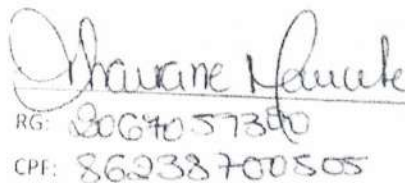 Thauane
RG: 2067057390
CPF: 86238700505